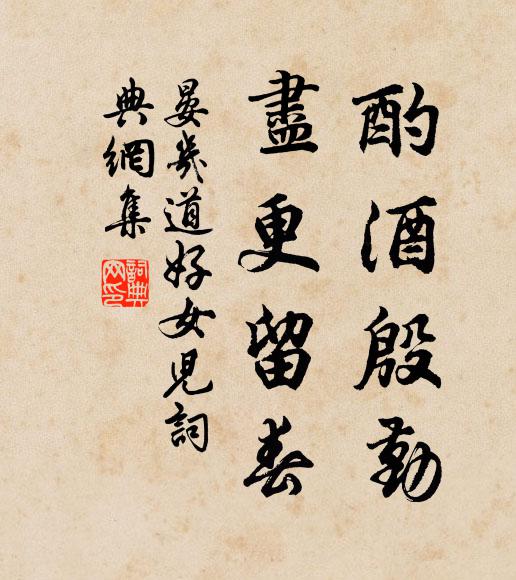 酌酒殷勤
盡更留春
晏幾道好女兒詞
典網集
詞典
网印